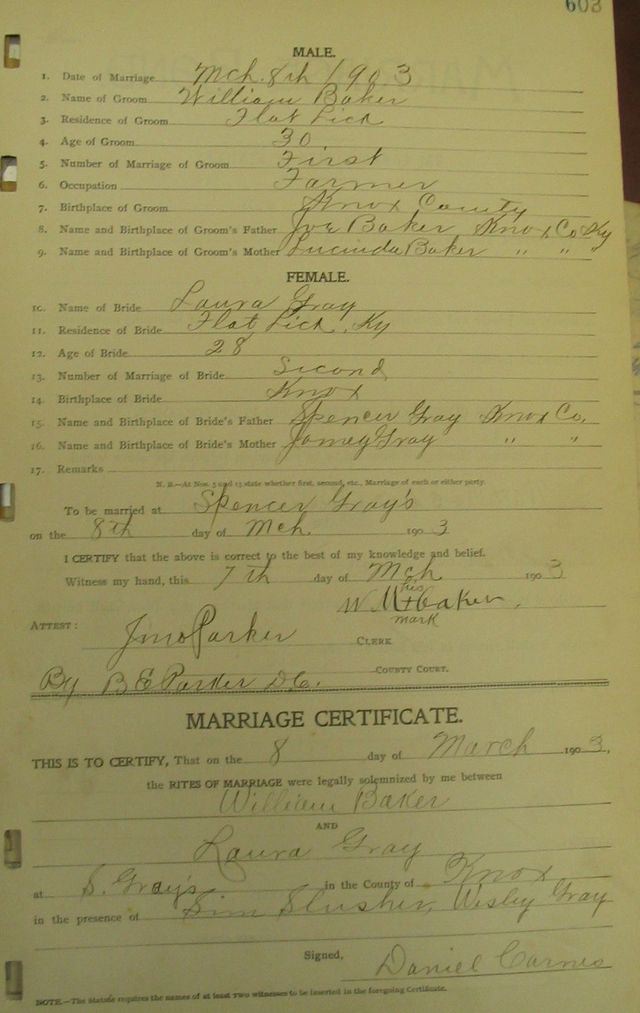 603
MALE.
1. Date of Marriage Mch. 8th 1903
2. Name of Groom William Baker
3. Residence of Groom Flat Lick
4. Age of Groom 30
5. Number of Marriage of Groom First
6. Occupation Farmer
7. Birthplace of Groom Knox County
8. Name and Birthplace of Groom's Father Joe Baker Knox Co Ky
9. Name and Birthplace of Groom's Mother Lucinda Baker " " "
FEMALE.
10. Name of Bride Laura Gray
11. Residence of Bride Flat Lick, Ky
12. Age of Bride 28
13. Number of Marriage of Bride Second
14. Birthplace of Bride Knox
15. Name and Birthplace of Bride's Father Spencer Gray Knox Co.
16. Name and Birthplace of Bride's Mother Gray " "
17. Remarks
N. B.—At Nos. 5 and 13 state whether first, second, etc., Marriage of each or either party.
To be married at Spencer Gray's
on the 8th day of Mch. 1903
I CERTIFY that the above is correct to the best of my knowledge and belief.
Witness my hand, this 7th day of Mch 1903
his
W M + Baker
mark
ATTEST: Jno Parker CLERK
COUNTY COURT.
By B E Parker D.C.
MARRIAGE CERTIFICATE.
THIS IS TO CERTIFY, That on the 8 day of March 1903,
the RITES OF MARRIAGE were legally solemnized by me between
William Baker
AND
Laura Gray
at S. Gray's in the County of Knox
in the presence of Sim Slusher, Wesley Gray
Signed, Daniel Carnes
NOTE.—The Statute requires the names of at least two witnesses to be inserted in the foregoing Certificate.